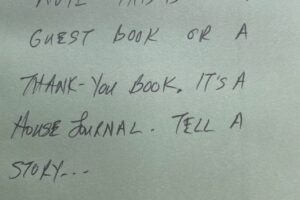 NOTE THIS IS
GUEST BOOK OR A
THANK-YOU BOOK. IT'S A
HOUSE JOURNAL. TELL A
STORY...